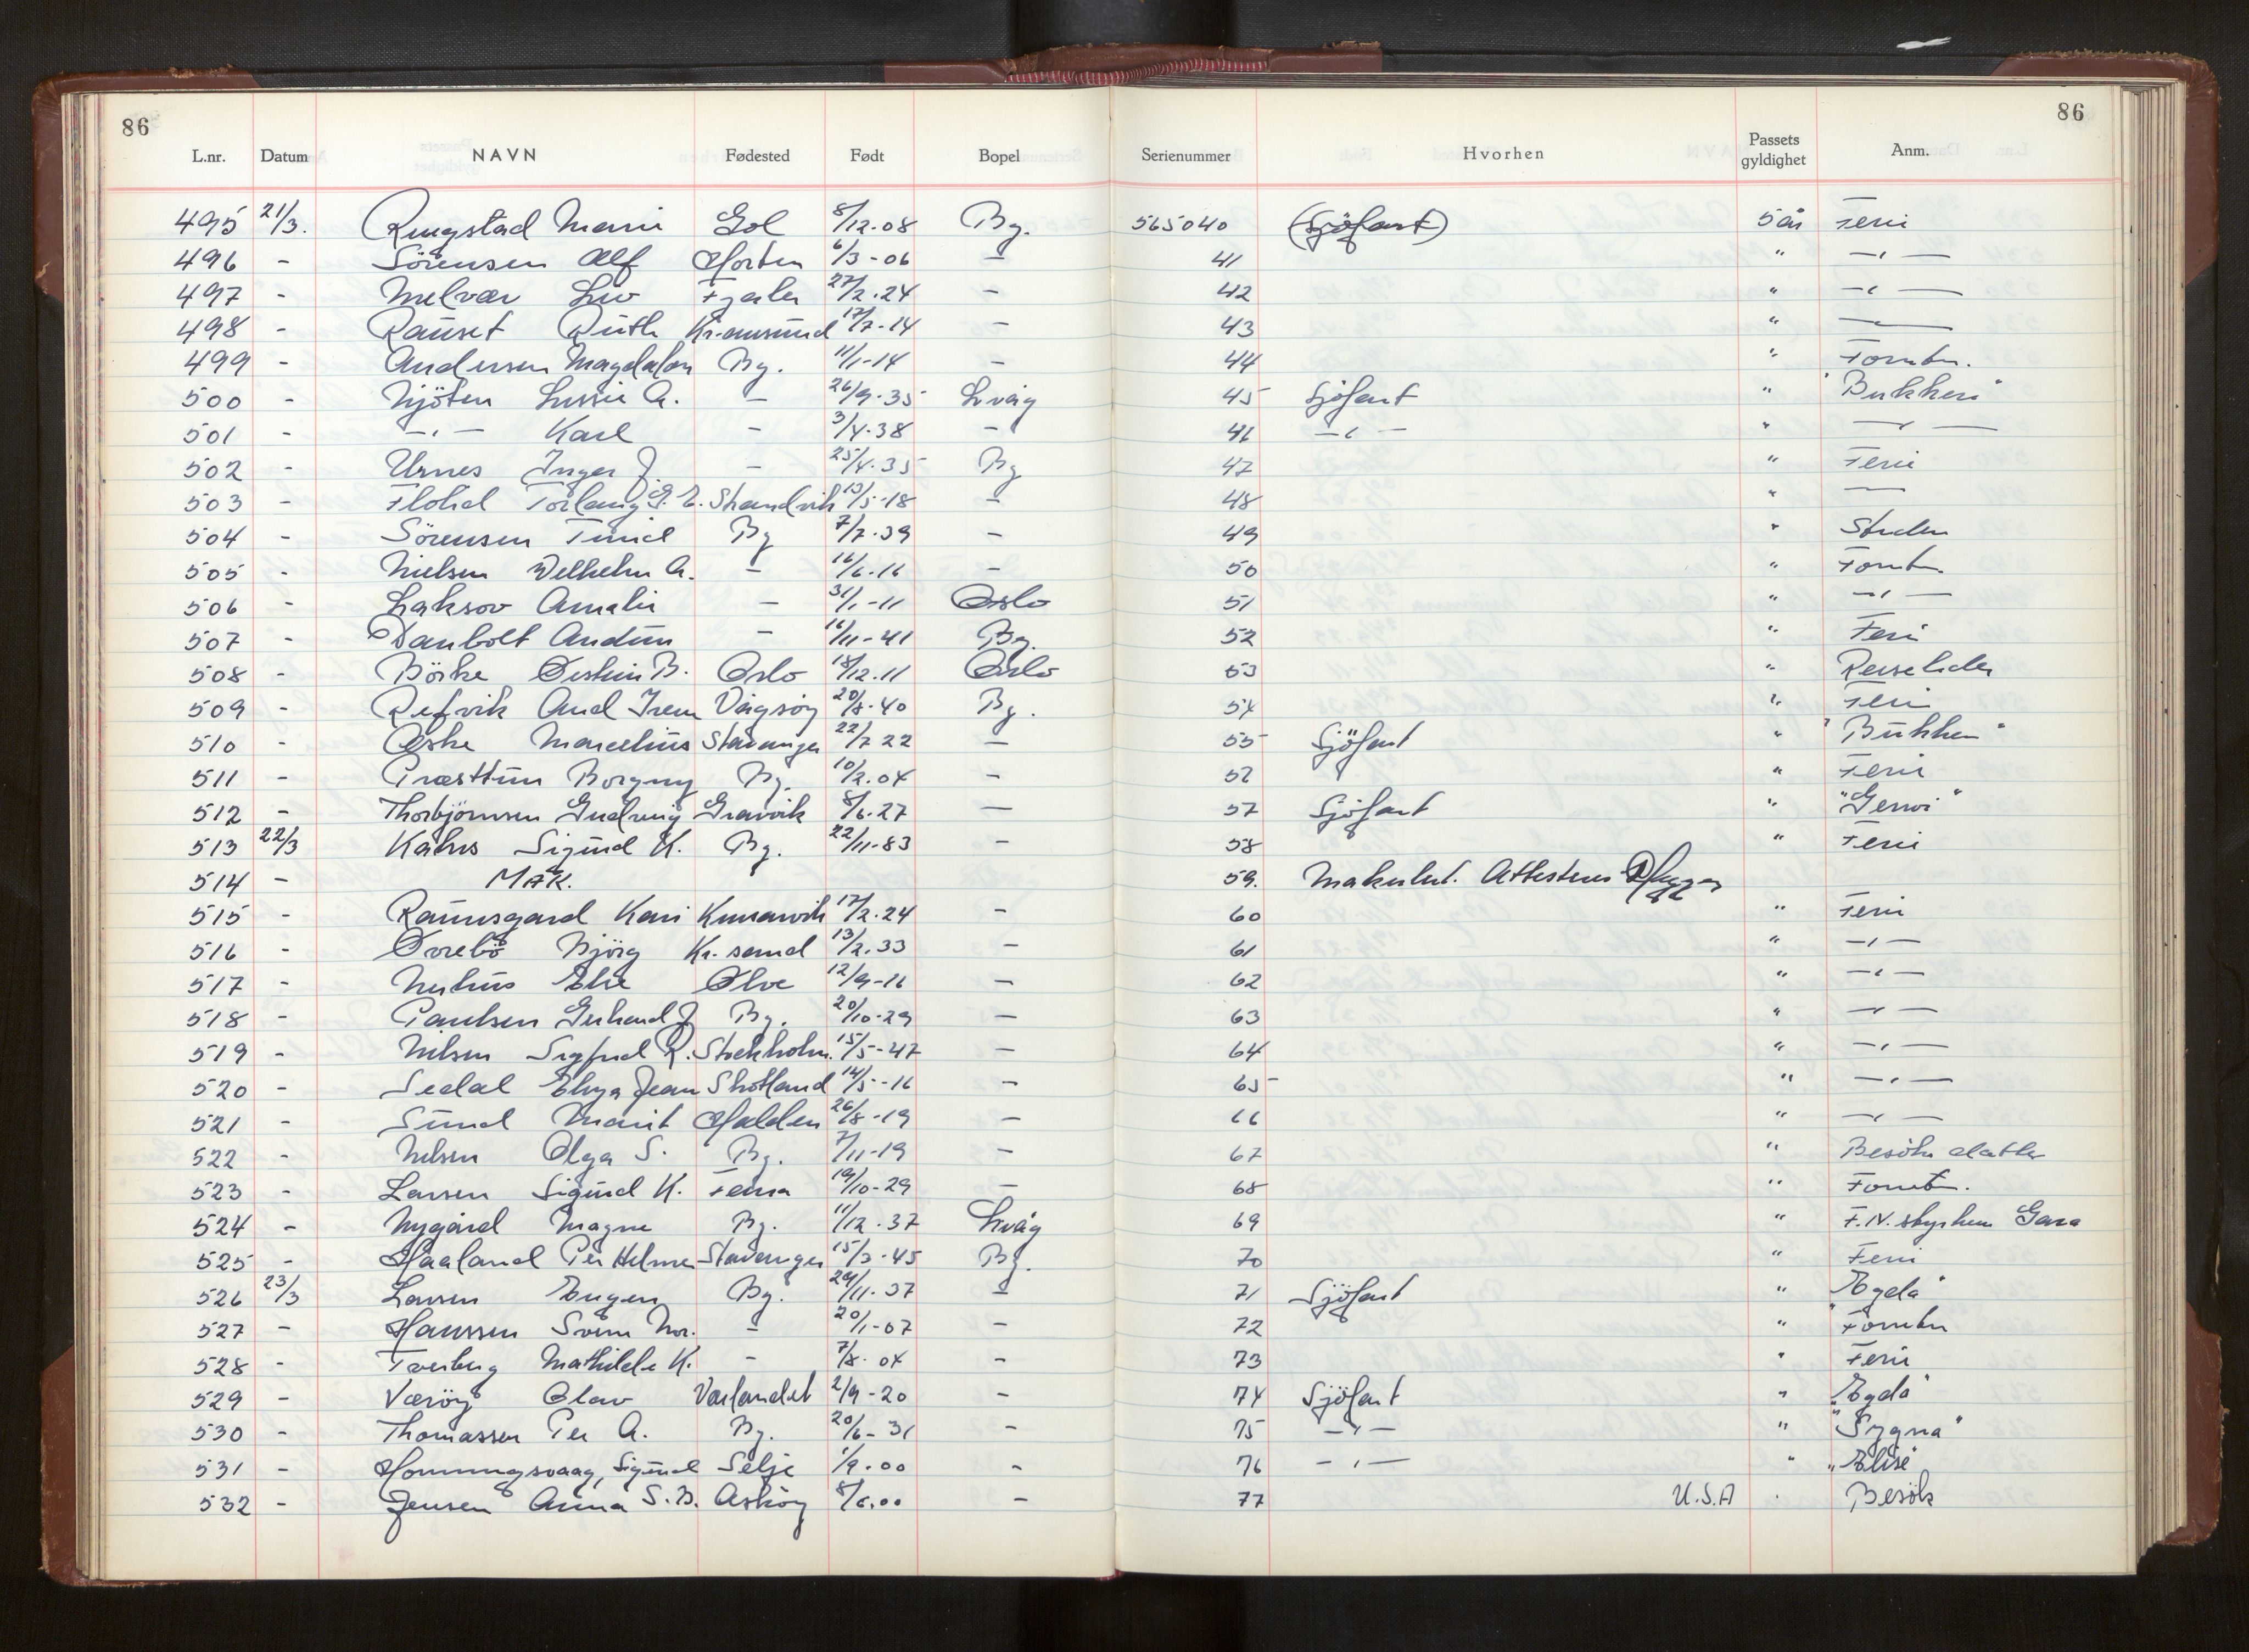 86 86
L.nr. Datum NAVN Fødested Født Bopel Serienummer Hvorhen Passets gyldighet Anm.
495 21/3. Ringstad Marie Gol 8/12.08 By. 565040 (Sjöfart) 5 år Ferie
496 - Sörensen Alf Horten 6/3-06 - 41 " -"-
497 - Melvær Liv Fjerla 27/2.24 - 42 " -"-
498 - Rauset Ruth Kr.ansund 17/7-14 - 43 " -
499 - Andersen Magdalon By. 11/1-14 - 44 " Forretn.
500 - Njöten Lussie A. - 26/9.35 Lvåg 45 Sjöfart " "Bukken"
501 - -"- Karl - 3/4.38 - 46 -"- " -"-
502 - Urnes Inger J. - 25/4.35 By 47 " Ferie
503 - Flolid Torlaug G.E. Strandvik 13/5-18 - 48 " -
504 - Sörensen Turid By 7/7.39 - 49 " Studen
505 - Nielsen Wilhelm A. - 16/6.16 - 50 " Forretn.
506 - Laksov Amalie - 31/1-11 Oslo 51 " -"-
507 - Danbolt Audun - 16/11-41 By. 52 " Feri
508 - Börke Øistein B. Oslo 18/12.11 Oslo 53 " Reiseleder
509 - Refvik Aud Irene Vågsöy 20/8-40 By. 54 " Feri
510 - Aske Marcelius Stavanger 22/7 22 - 55 Sjöfart " "Bukken"
511 - Præsttun Borgny By. 10/2.04 - 57 " Ferie
512 - Thorbjörnsen Gudveig Gravvik 8/6.27 - 57 Sjöfart " "Gerwi"
513 22/3 Kahrs Sigurd K. By. 22/11-83 - 58 " Ferie
514 - MAK. 59. Makulert. Attesteres
515 - Raunsgard Kari Kinsarvik 17/2.24 - 60 " Ferie
516 - Øvrebö Björg Kr.sand 13/2.33 - 61 " -"-
517 - Nerhus Else Ølve 12/9-16 - 62 " -"-
518 - Paulsen Gerhard J By. 20/10-29 - 63 " -"-
519 - Nilsen Sigfrid R. Stockholm. 15/5-47 - 64 " -"-
520 - Sedal Elzya Jean Skotland 14/5-16 - 65 " -"-
521 - Sund Marit Halden 26/8-19 - 66 " -"-
522 - Nilsen Olga S. By. 7/11-19 - 67 " Besöke datter
523 - Larsen Sigurd K. Fana 19/10-29 - 68 " Forretn.
524 - Nygård Magne By. 11/12.37 Lvåg 69 " F.N. styrken Gaza
525 - Haaland Per Helmer Stavanger 15/3-45 By. 70 " Feri
526 23/3 Larsen Eugen By. 29/11.37 - 71 Sjöfart " "Egda"
527 - Hanssen Svein Nor. - 20/1-07 - 72 " Forretn
528 - Tverberg Mathilde K. - 7/8.04 - 73 " Ferie
529 -Væröy Olav Værlandet 2/9-20 - 74 Sjöfart " "Egda"
530 - Thomassen Per A. By. 20/6-31 - 75 -"- " "Sygna"
531 - Hornungsvaag, Sigurd Selje 1/9.00 - 76 -"- " "Elise"
532 - Jensen Anna S.B. Asköy 8/6.00 - 77 U.S.A . Besök